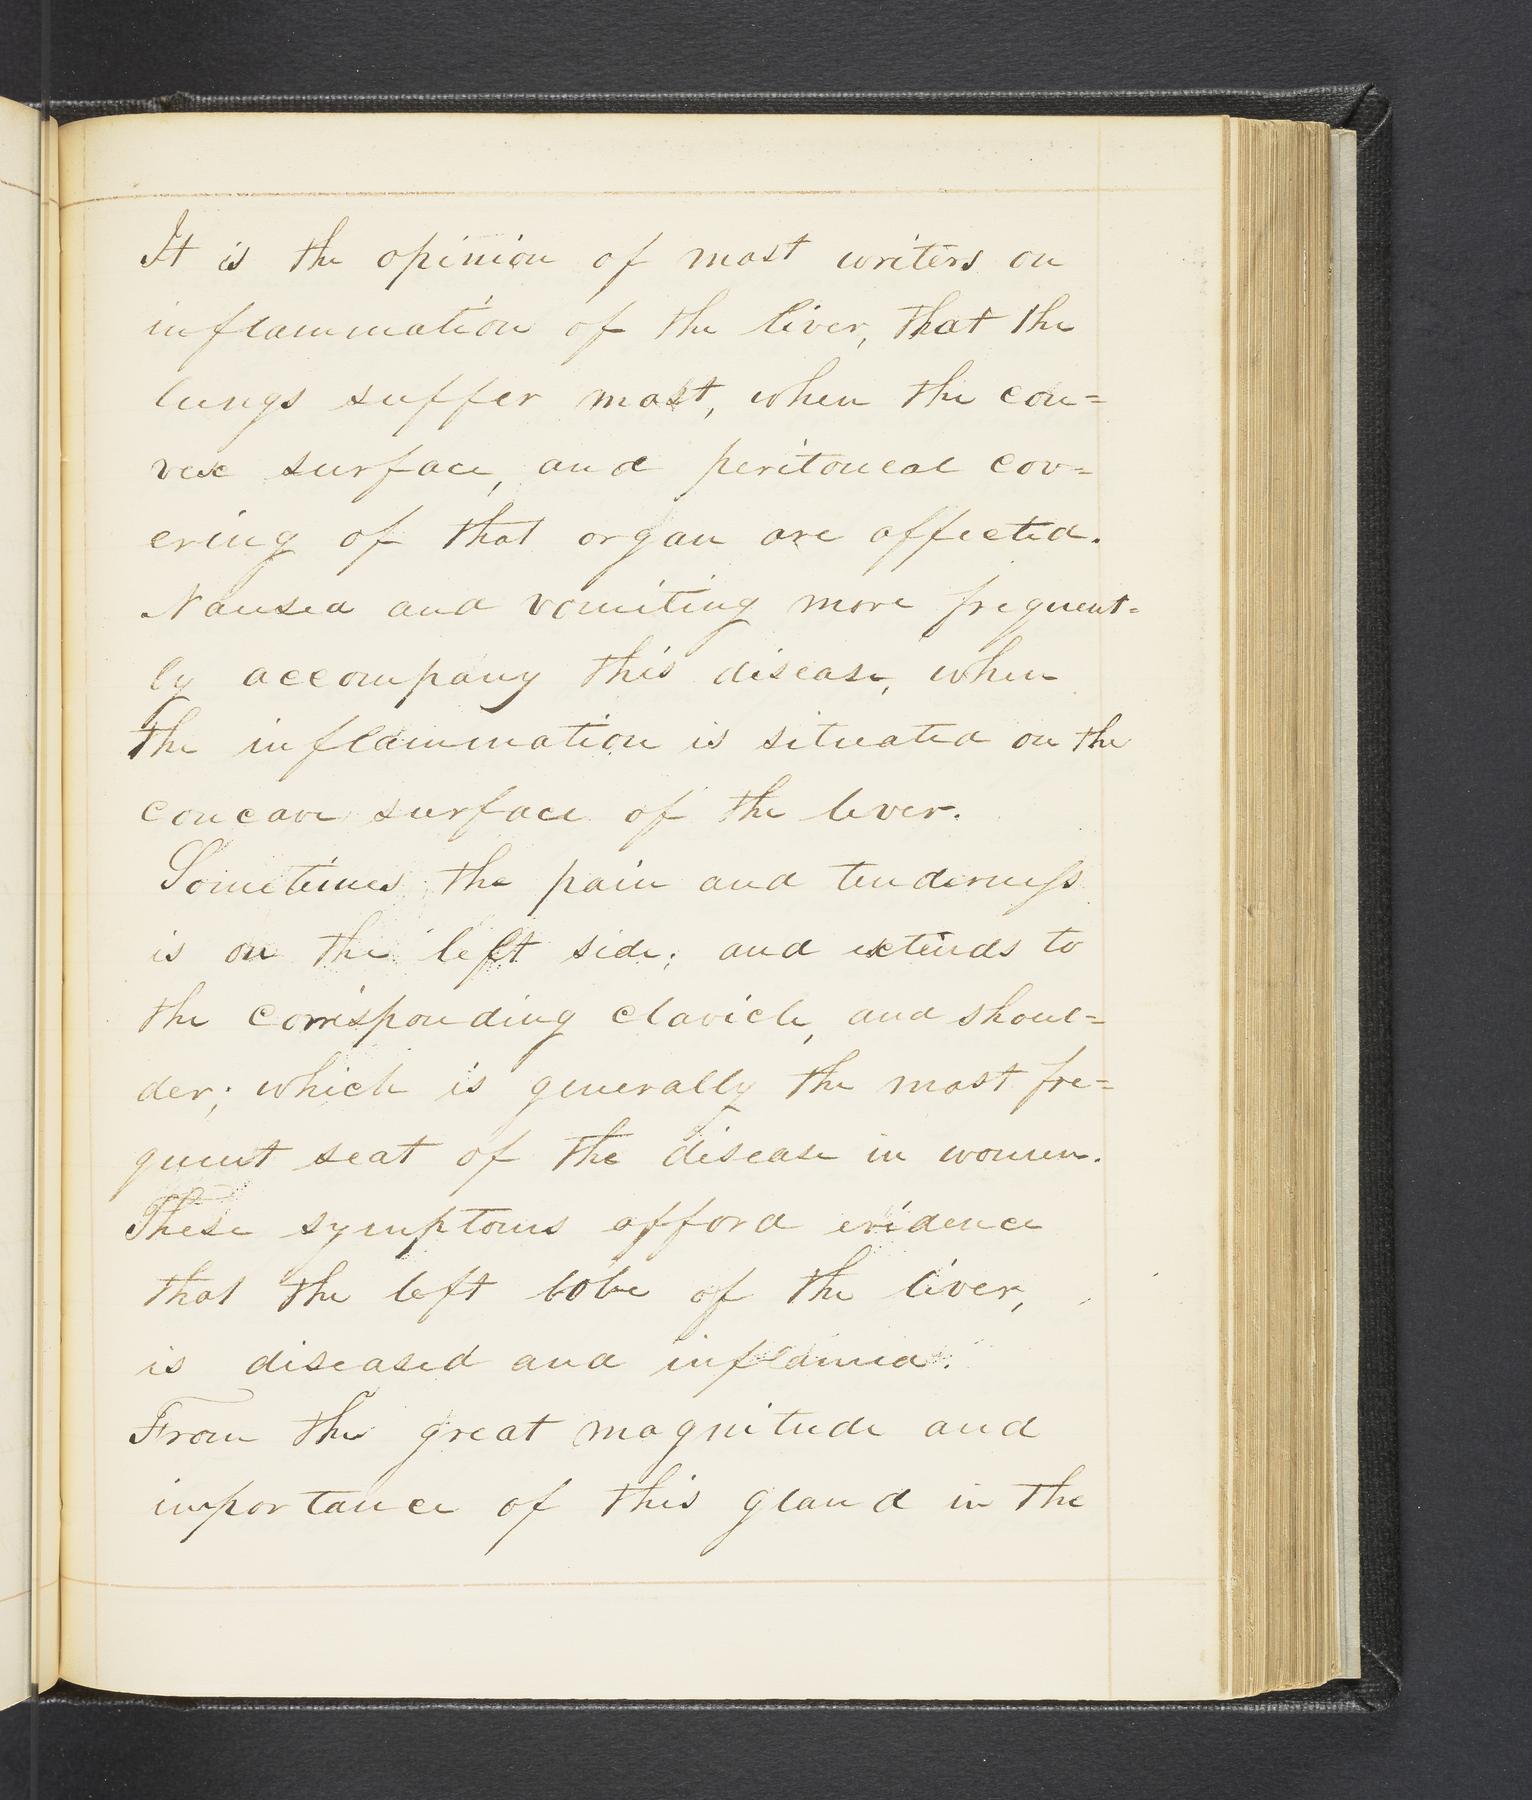 It is the opinion of most writers on
inflammation of the liver, that the
lungs suffer most, when the con=
vex surface, and peritoneal cov=
ering of that organ are affected.
Nausea and vomiting more frequent=
ly accompany this disease, when
the inflammation is situated on the
concave surface of the liver.
Sometimes the pain and tenderness
is on the left side; and extends to
the corrisponding clavicle, and shoul=
der; which is generally the most fre=
quent seat of the disease in women.
These symptoms afford evidence
that the left lobe of the liver,
is diseased and inflamed.
From the great magnitude and
importance of this gland in the